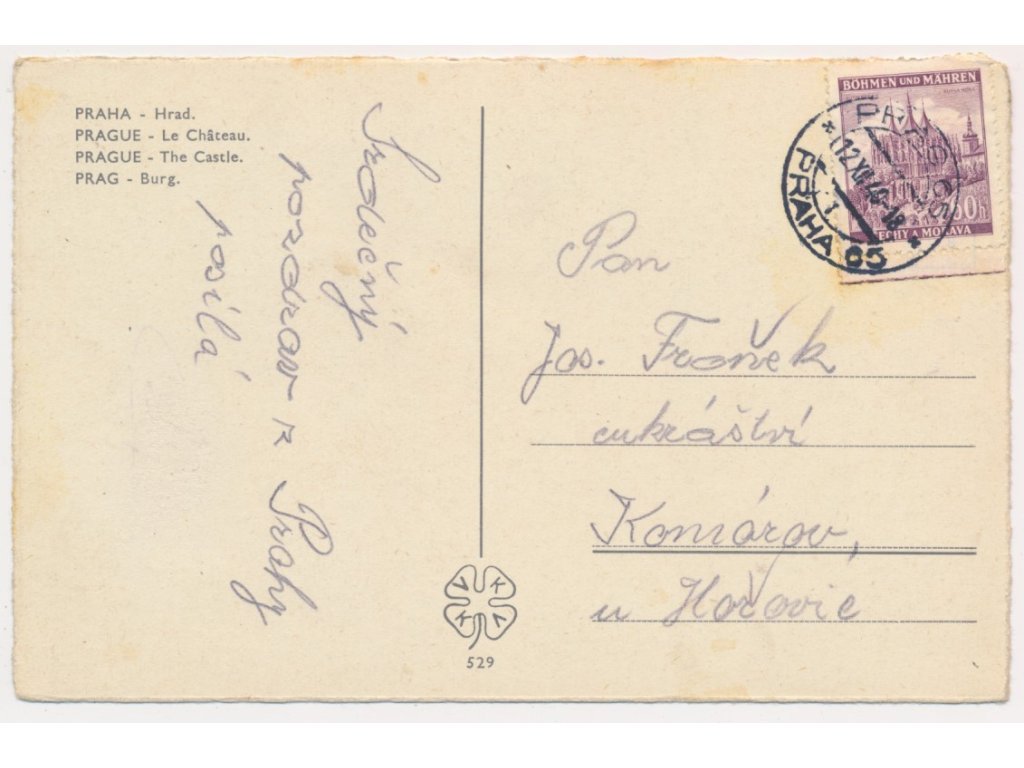 PRAHA - Hrad.
PRAGUE - Le Château.
PRAGUE - The Castle.
PRAG - Burg.
Srdečný
pozdrav z Prahy
posílá
BÖHMEN UND MÄHREN
60h
ČECHY A MORAVA
PRAG 65
12.XI.40-18
1
PRAHA 65
Pan
Jos. Froněk
cukrářství
Komárov,
u Hořovic
V K
K V
529